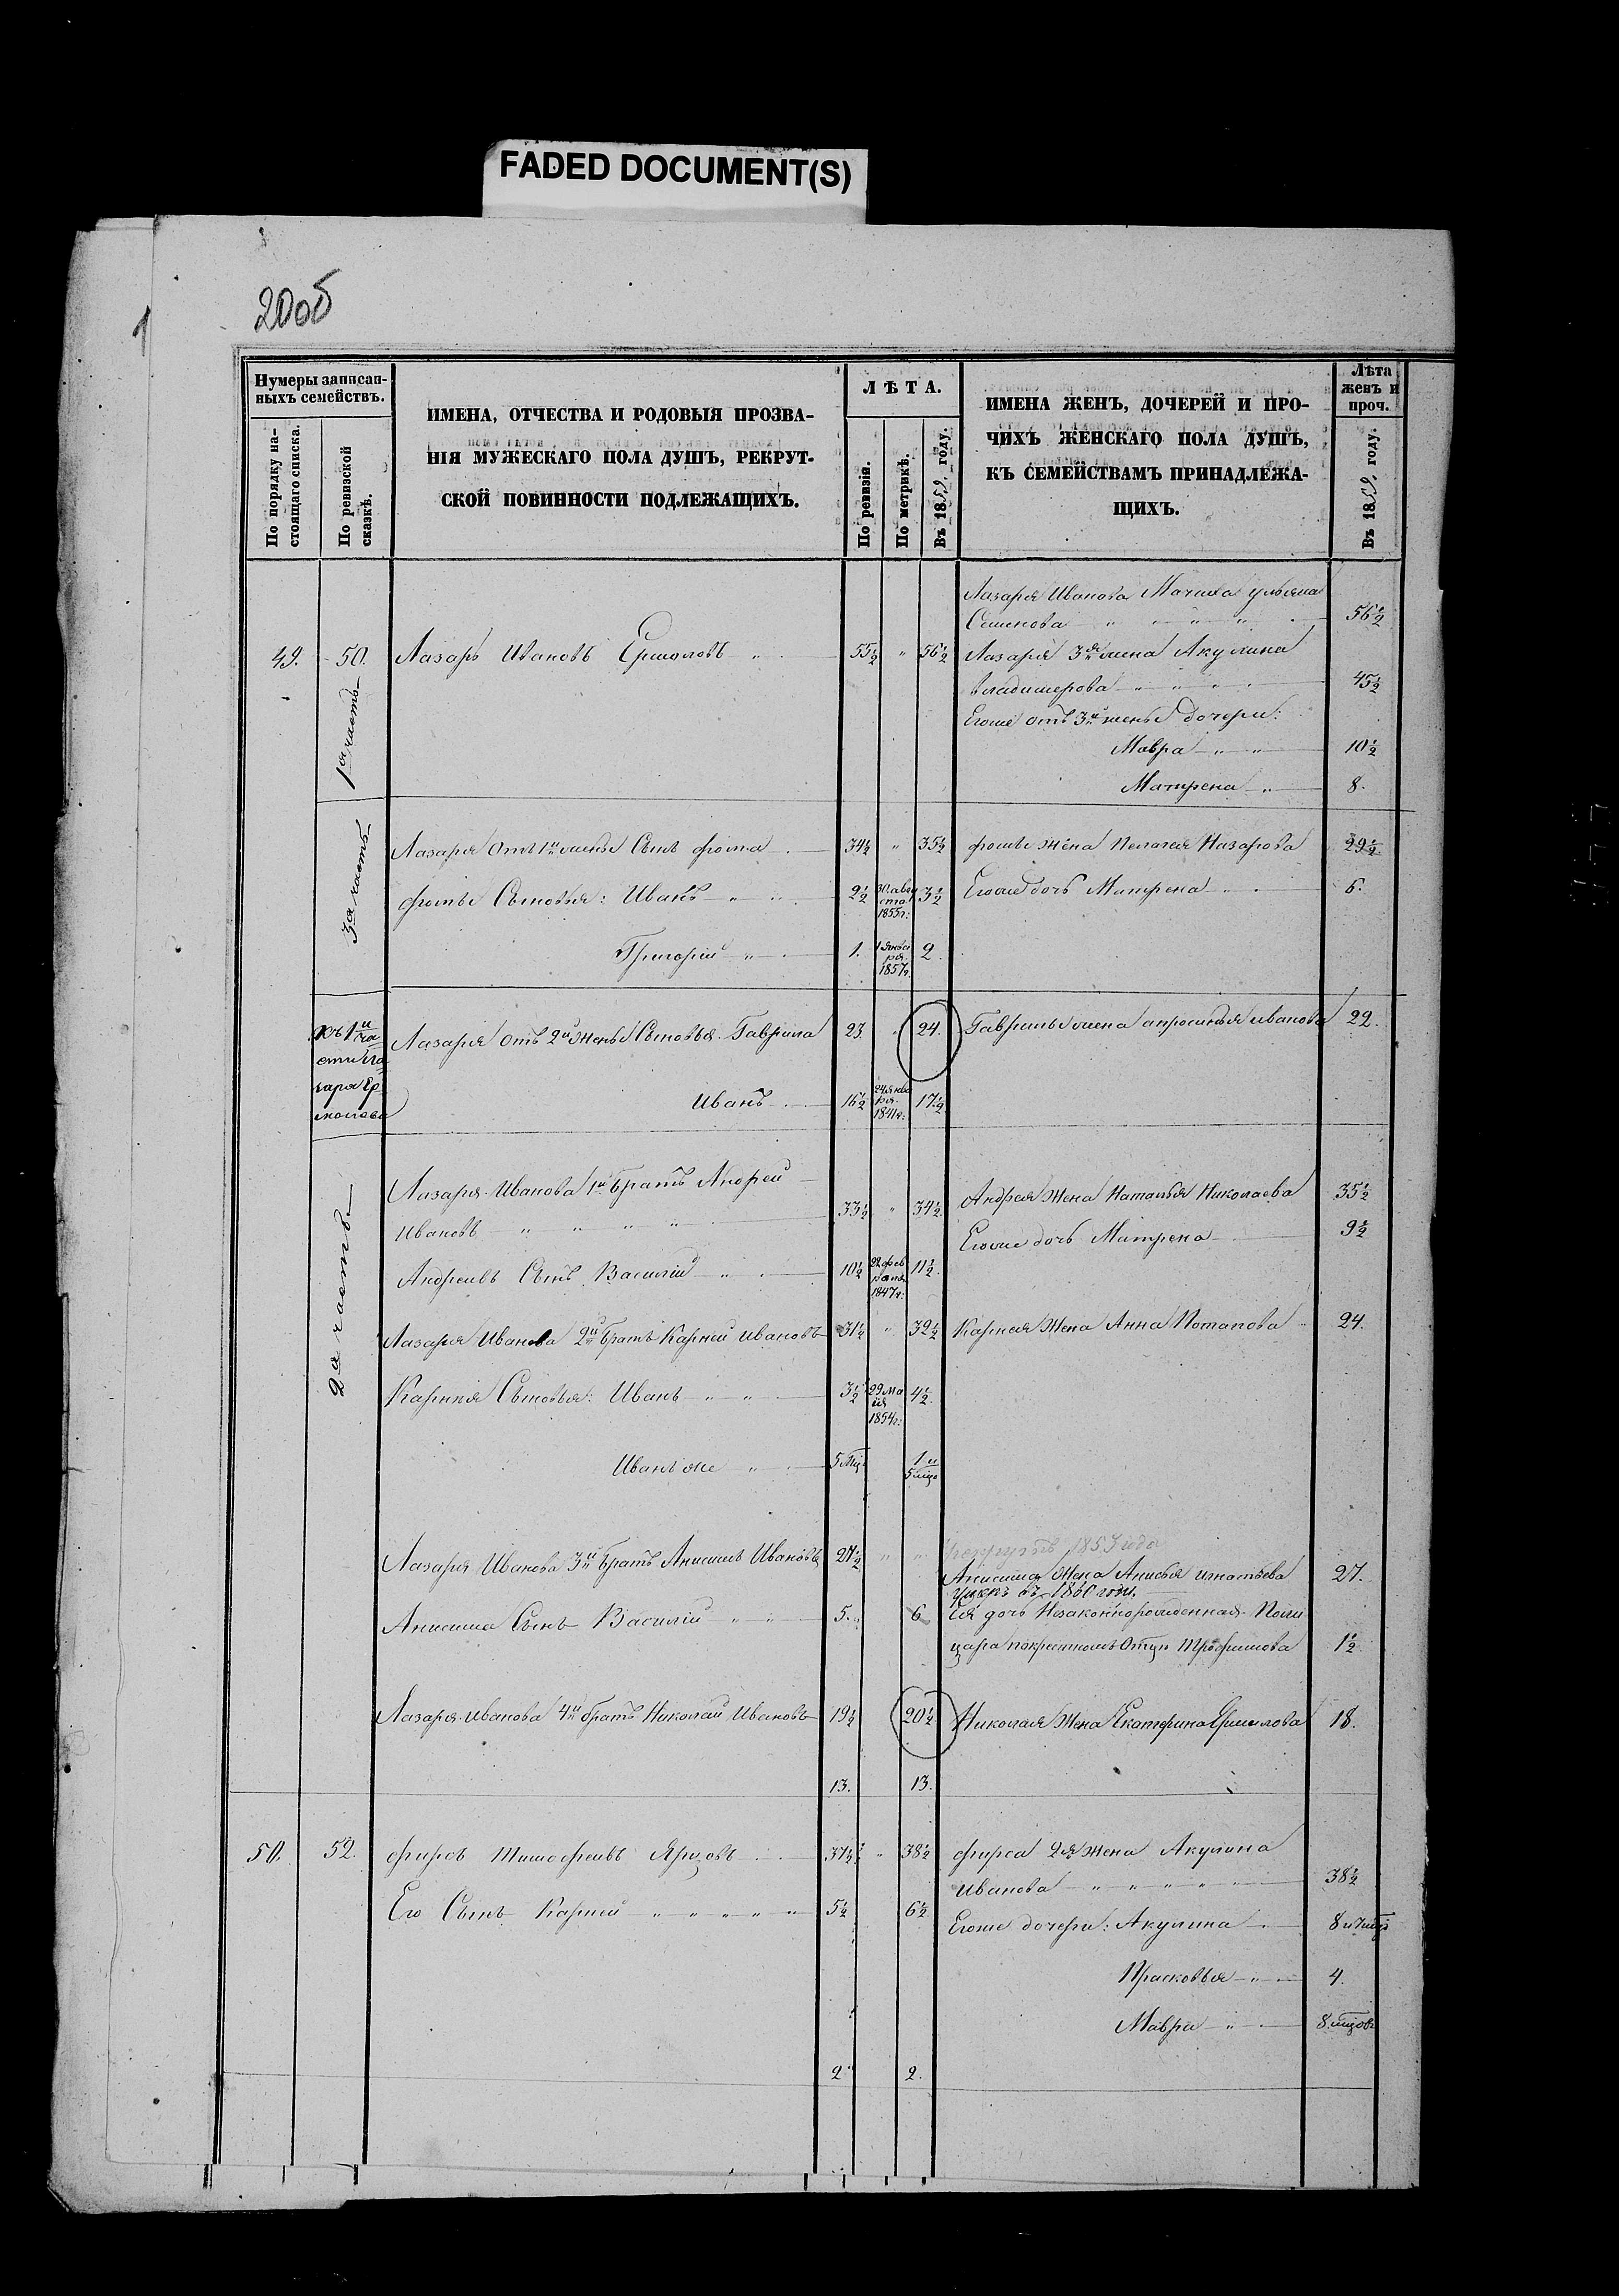 FADED DOCUMENT(S)
200б
1
Нумеры записан-
ныхъ семействъ.
По порядку на-
стоящаго списка.
По ревизской
сказкѣ.
ИМЕНА, ОТЧЕСТВА И РОДОВЫЯ ПРОЗВА-
НІЯ МУЖЕСКАГО ПОЛА ДУШЪ, РЕКРУТ-
СКОЙ ПОВИННОСТИ ПОДЛЕЖАЩИХЪ.
ЛѢТА.
По ревизіи.
По метрикѣ.
Въ 1859, году.
ИМЕНА ЖЕНЪ, ДОЧЕРЕЙ И ПРО-
ЧИХЪ ЖЕНСКАГО ПОЛА ДУШЪ,
КЪ СЕМЕЙСТВАМЪ ПРИНАДЛЕЖА-
ЩИХЪ.
Лѣта
женъ и
проч.
Въ 1859, году.
Лазаря Иванова Мачиха ульяна
Семенова " " " " 56½
49. 50. Лазарь Ивановъ Ермоловъ " 55½ " 56½ Лазаря 3я жена Акулина
владимерова " " " 45½
1я часть
Егоже отъ 3й жены дочери:
Мавра " " 10½
Матрена " 8.
3я часть
Лазаря отъ 1й жены Сынъ фома 34½ " 35½ фомы жена Пелагея Назарова 29½
фомы Сыновья: Иванъ " " 2½ 30 авгу
ста
1855г: 3½ Егоже дочь Матрена " 6.
Григорій " 1. 1 Янва
ря
1857г. 2.
Къ 1й ча
сти Ла
заря Ер
молова
Лазаря отъ 2й жены Сыновья. Гаврила 23. " 24. Гаврилы жена апросинья иванова 22.
Иванъ 16½ 24 янва
ря
1841г: 17½
2я часть
Лазаря Иванова 1й братъ Андрей
Ивановъ " " " " 33½ " 34½ Андрея Жена Наталья Николаева 35½
Егоже дочь Матрена 9½
Андреевъ Сынъ Василій " 10½ 22 фев
раля
1847г: 11½
Лазаря Иванова 2й братъ Карней Ивановъ 31½ " 32½ Карнея Жена Анна Потапова 24.
Карнея Сыновья: Иванъ " " 3½ 29 ма
ія
1854г: 4½
Иванъ же " 5 мцъ 1 и
5 мцъ
Рекрутъ 1853 года
Лазаря Иванова 3й братъ Анисимъ Ивановъ 27½ " " Анисима Жена Анисья игнатьева 27.
1860 годи.
Анисима Сынъ Василій " " 5. 6 Ея дочь Незаконнорожденная Поли
цара покрестномъ Отцу Трофимова 1½
Лазаря Иванова 4й братъ Николай Ивановъ 19½ 20½ Николая Жена Екатерина Ермилова 18.
13. 13.
50. 52. фирсъ Тимофеевъ Ярцовъ 37½ " 38½ фирса 2я Жена Акулина
Иванова " " " " " 38½
Его Сынъ Карней " " " " " 5½ 6½ Егоже дочери: Акулина 8 и 7 мцъ
Прасковья " 4.
Мавра " 8 мцовъ
2 2.